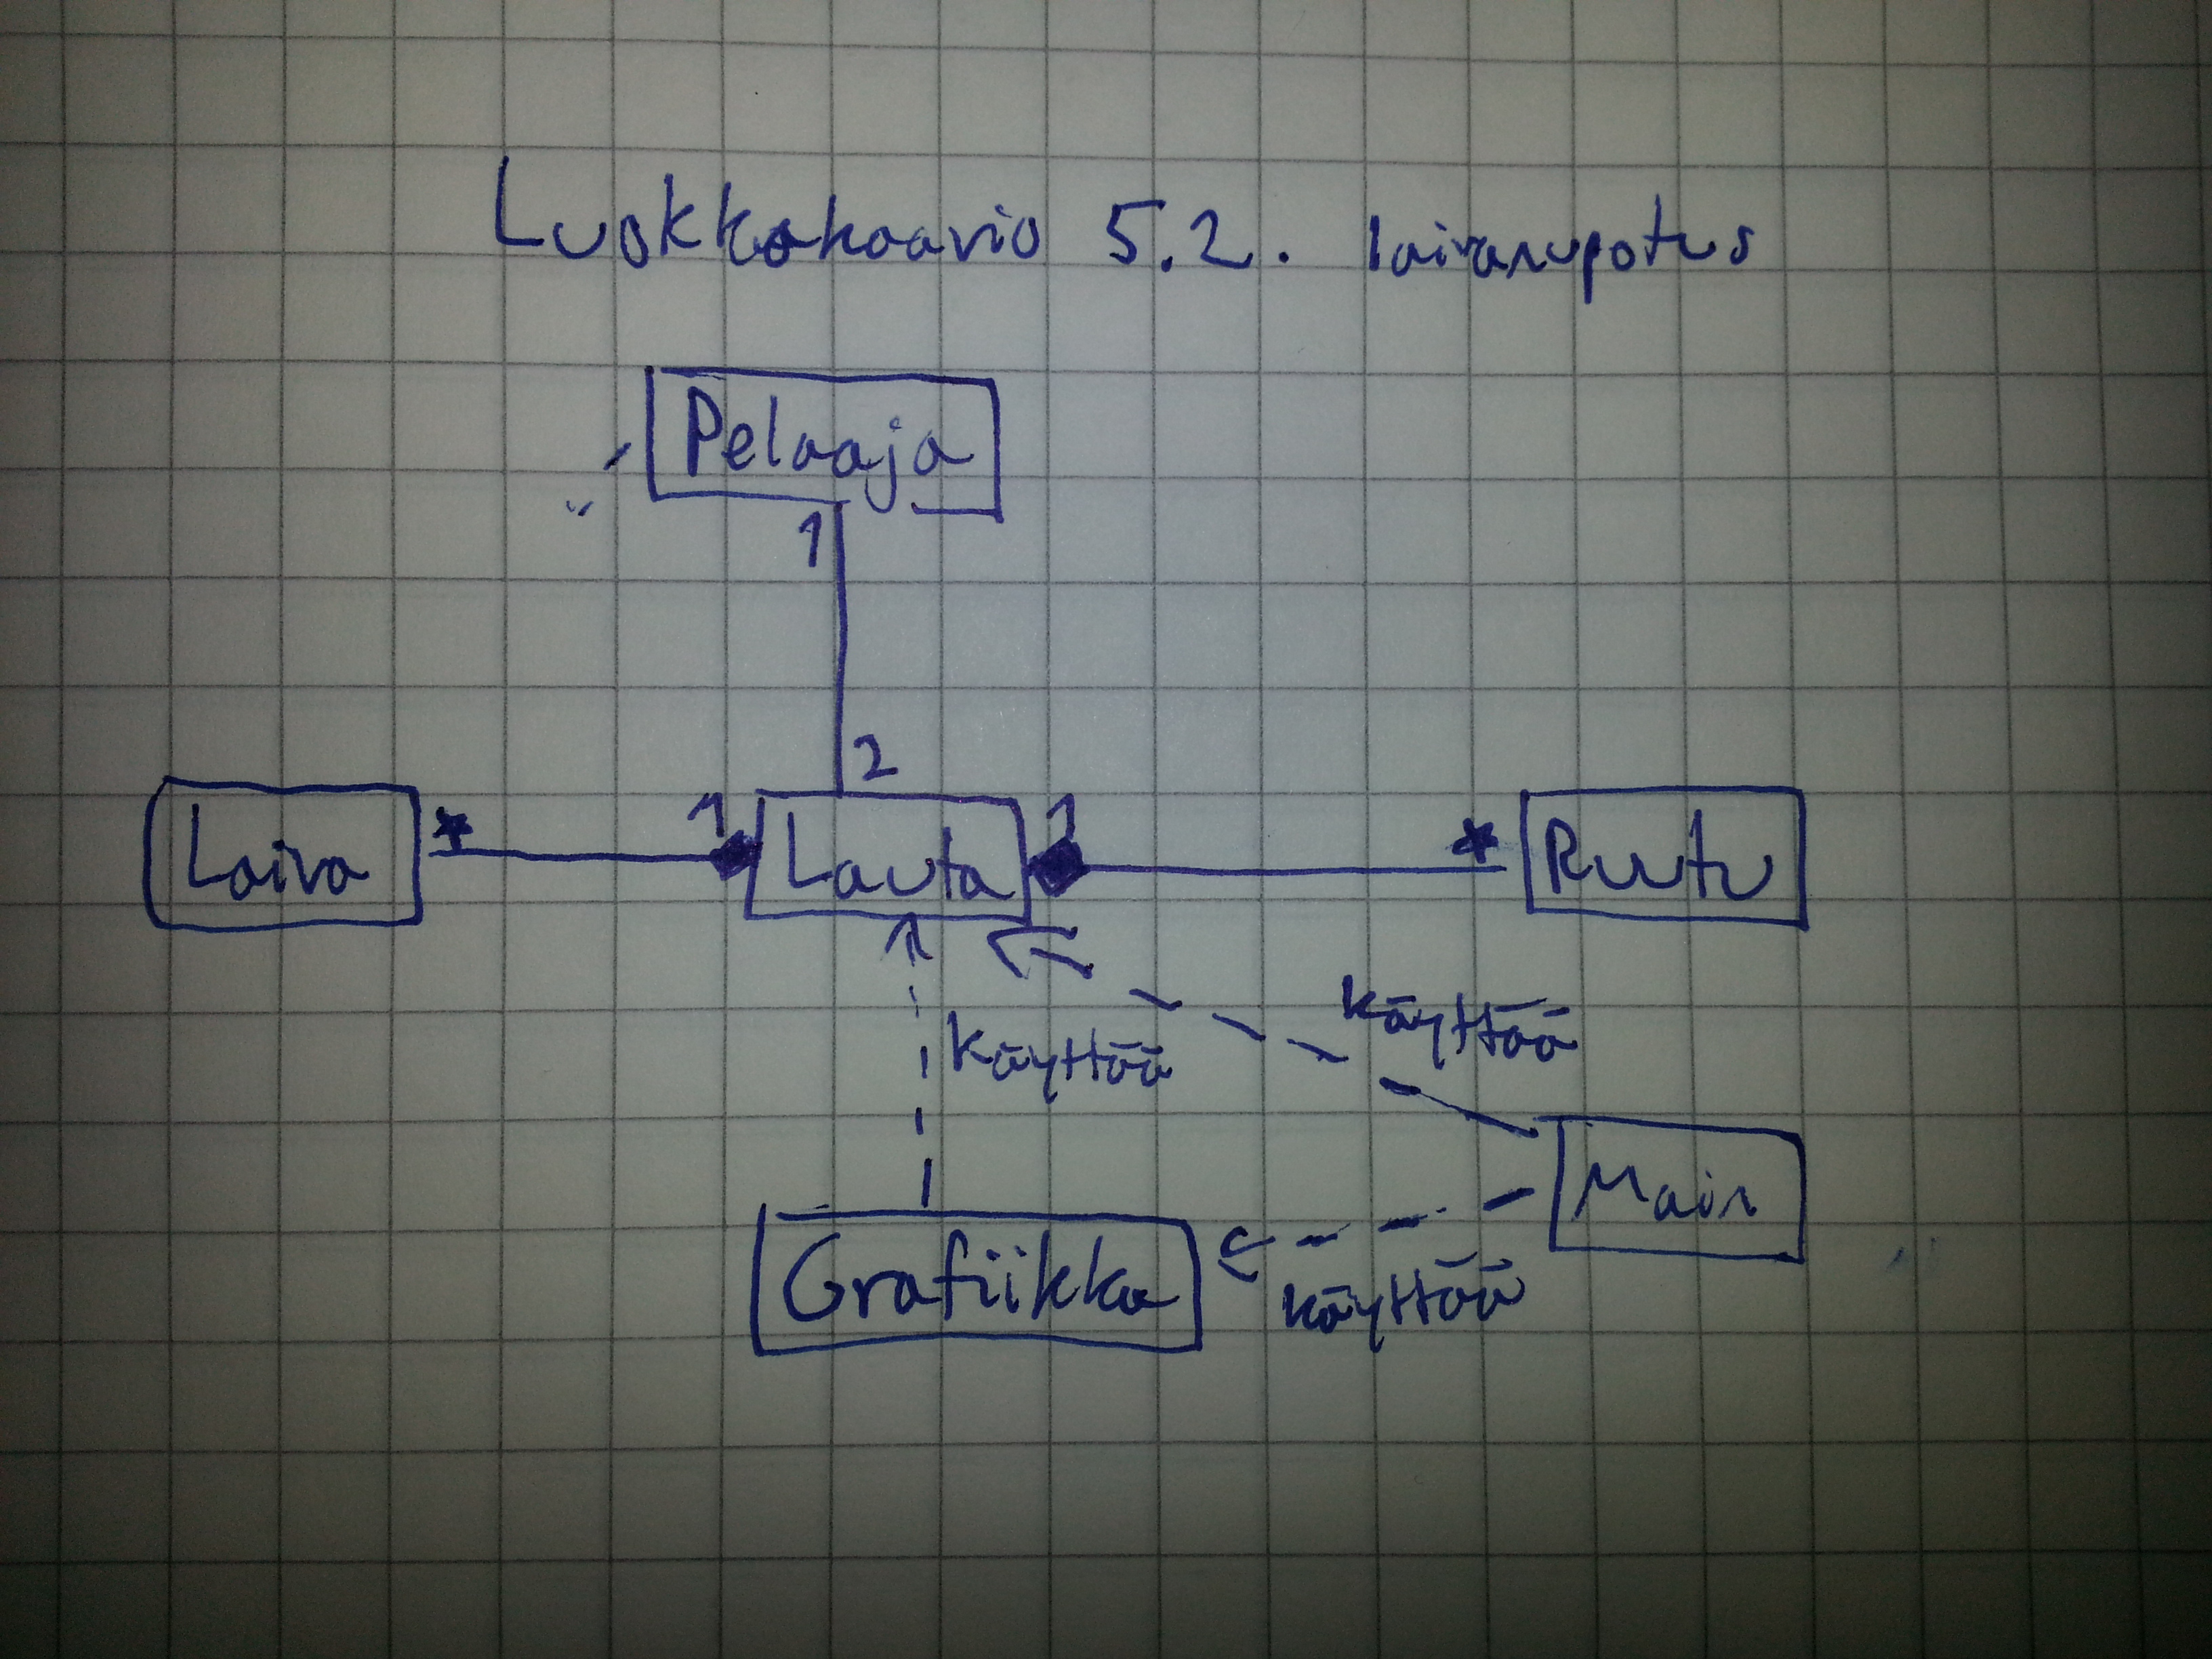 Luokkakaavio 5.2. laivanupotus
Pelaaja
1
2
Laiva * 1 Lauta 1 * Ruutu
käyttöö
käyttöö
Main
Grafiikka
käyttöö